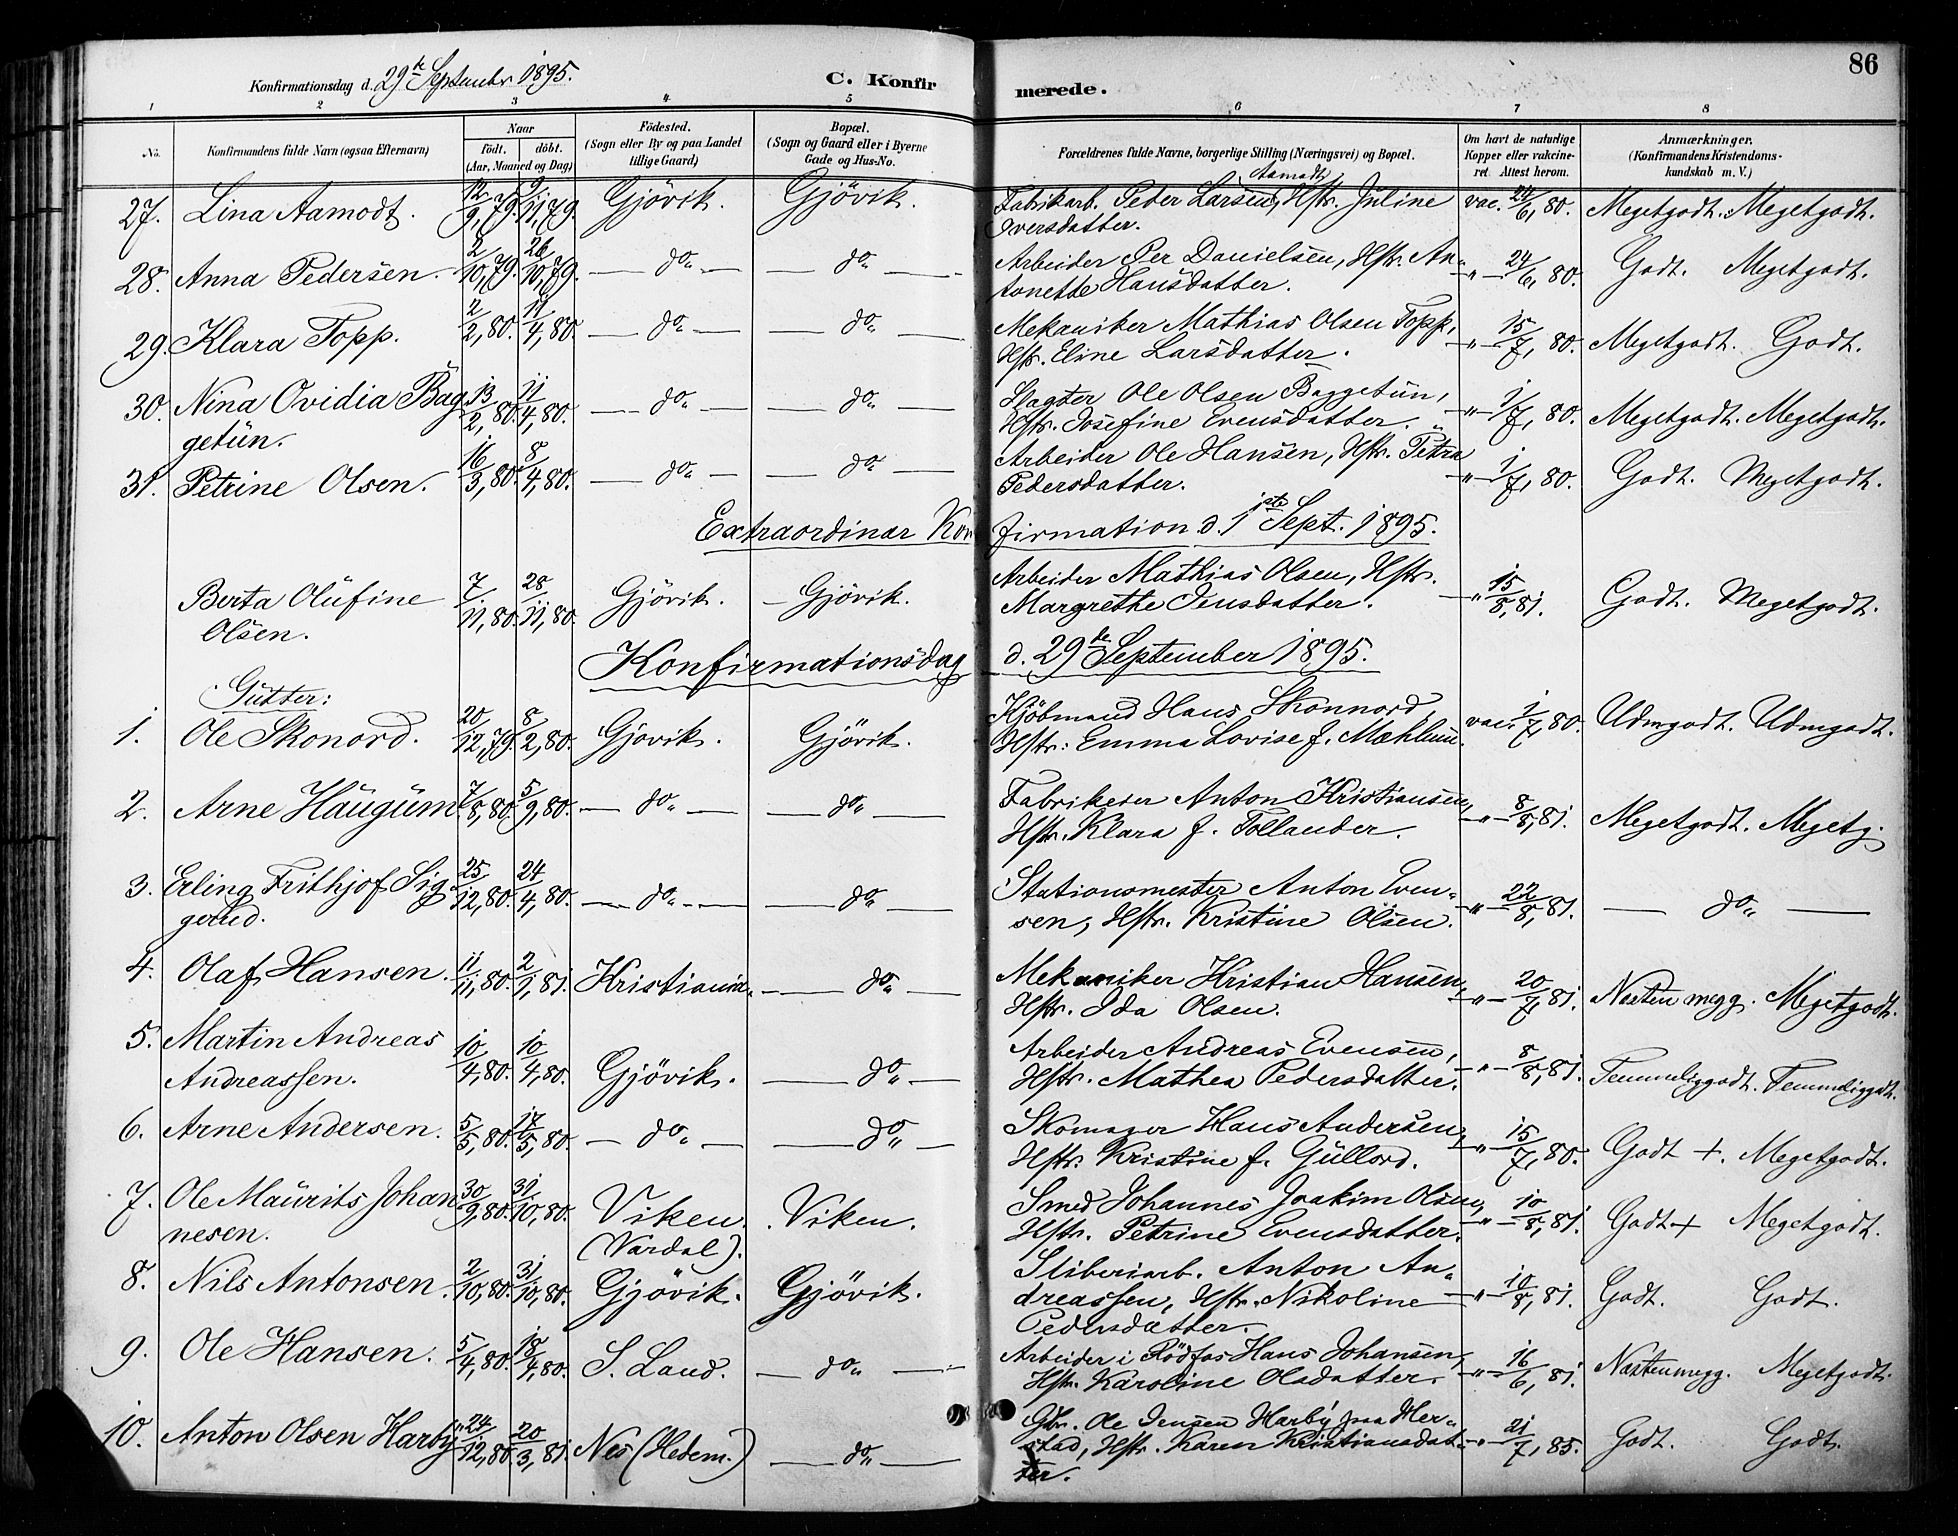 86
Konfirmationsdag d. 29de September 1895.
C. Konfirmerede.
1 2 3 4 5 6 7 8
No. Konfirmandens fulde Navn (ogsaa Efternavn) Naar födt. döbt. (Aar, Maaned og Dag) Födested. (Sogn eller By og paa Landet tillige Gaard) Bopæl. (Sogn og Gaard eller i Byerne Gade og Hus-No. Forældrenes fulde Navne, borgerlige Stilling (Næringsvei) og Bopæl. Om havt de naturlige Kopper eller vakcineret. Attest herom. Anmærkninger. (Konfirmandens Kristendomskundskab m. V.)
27. Lina Aamodt. 12/9, 79. 9/11, 79. Gjövik. Gjövik. Fabrikarb. Peder Larsen Aamodt, Hstr. Juline vac. 24/6, 80. Megetgodt. Megetgodt.
Iversdatter.
28. Anna Pedersen. 2/10, 79. 26/10, 79. — do" — — do" — Arbeider Per Danielsen, Hstr. An- — " — 24/6, 80. Godt. Megetgodt.
tonette Hansdatter.
29. Klara Topp. 2/2, 80. 11/4, 80. — do" — — do" — Mekaniker Mathias Olsen Topp, — " — 15/7, 80. Megetgodt. Godt.
Hstr. Eline Larsdatter.
30. Nina Ovidia Bag- 13/2, 80. 11/4, 80. — do" — — do" — Slagter Ole Olsen Baggetun, — " — 1/7, 80. Megetgodt. Megetgodt.
getun. Hstr. Josefine Evensdatter.
31. Petrine Olsen. 16/3, 80. 8/4, 80. — do" — — do" — Arbeider Ole Hansen, Hstr. Petra — " — 1/7, 80. Godt. Megetgodt.
Pedersdatter.
Extraordinær Konfirmation d. 1ste Sept. 1895.
Berta Olufine 7/11, 80. 28/11, 80. Gjövik. — Gjövik. Arbeider Mathias Olsen, Hstr. — " — 15/8, 81. Godt. Megetgodt.
Olsen. Margrethe Jensdatter.
Konfirmationsdag d. 29de September 1895.
Gutter:
1. Ole Skonord. 20/12, 79. 8/2, 80. Gjövik. Gjövik. Kjöbmand Hans Skonnord, vac. 1/7, 80. Udmgodt. Udmgodt.
Hstr: Emma Lovise f. Mæhlum.
2. Arne Haugum. 7/8, 80. 5/9, 80. — do" — — do" — Fabrikeier Anton Kristiansen, — " — 8/8, 81. Megetgodt. Megetg.
Hstr. Klara f. Tollander.
3. Erling Frithjof Sig- 25/12, 80. 24/4, 80. — do" — — do" — Stationsmester Anton Even- — " — 22/8, 81. — do" —
gerud. sen, Hstr. Kristine Olsen.
4. Olaf Hansen. 11/11, 80. 2/1, 81. Kristiania. — do" — Mekaniker Kristian Hansen, — " — 20/7, 81. Næsten megg. Megetgodt.
Hstr. Ida Olsen.
5. Martin Andreas 10/4, 80. 10/4, 80. Gjövik. — do" — Arbeider Andreas Evensen, — " — 8/8, 81. Temmeliggodt. Temmeliggodt.
Andreassen. Hstr. Mathea Pedersdatter.
6. Arne Andersen. 5/5, 80. 17/5, 80. — do" — — do" — Skomager Hans Andersen, — " — 15/7, 80. Godt +. Megetgodt.
Hstr. Kristine f. Gullord.
7. Ole Maurits Johan- 30/9, 80. 31/10, 80. Viken. Viken. Smed Johannes Joakim Olsen, — " — 10/8, 81. Godt + Megetgodt.
nesen. (Vardal). Hstr. Petrine Evensdatter.
8. Nils Antonsen. 2/10, 80. 31/10, 80. Gjövik. Gjövik. Sliberiarb. Anton An- — " — 10/8, 81. Godt. Godt.
dreassen, Hstr. Nikoline
Pedersdatter.
9. Ole Hansen. 5/4, 80. 18/4, 80. S. Land. — do" — Arbeider i Rödfos Hans Johansen, — " — 16/6, 81. Næsten megg. Megetgodt.
Hstr. Karoline Olsdatter.
10. Anton Olsen Harby 24/12, 80. 20/3, 81. Nes (Hedem.) — do" — Gbr. Ole Jensen Harby paa Her- — " — 21/7, 85. Godt. Godt.
stad, Hstr. Karen Kristiansdat-
ter.